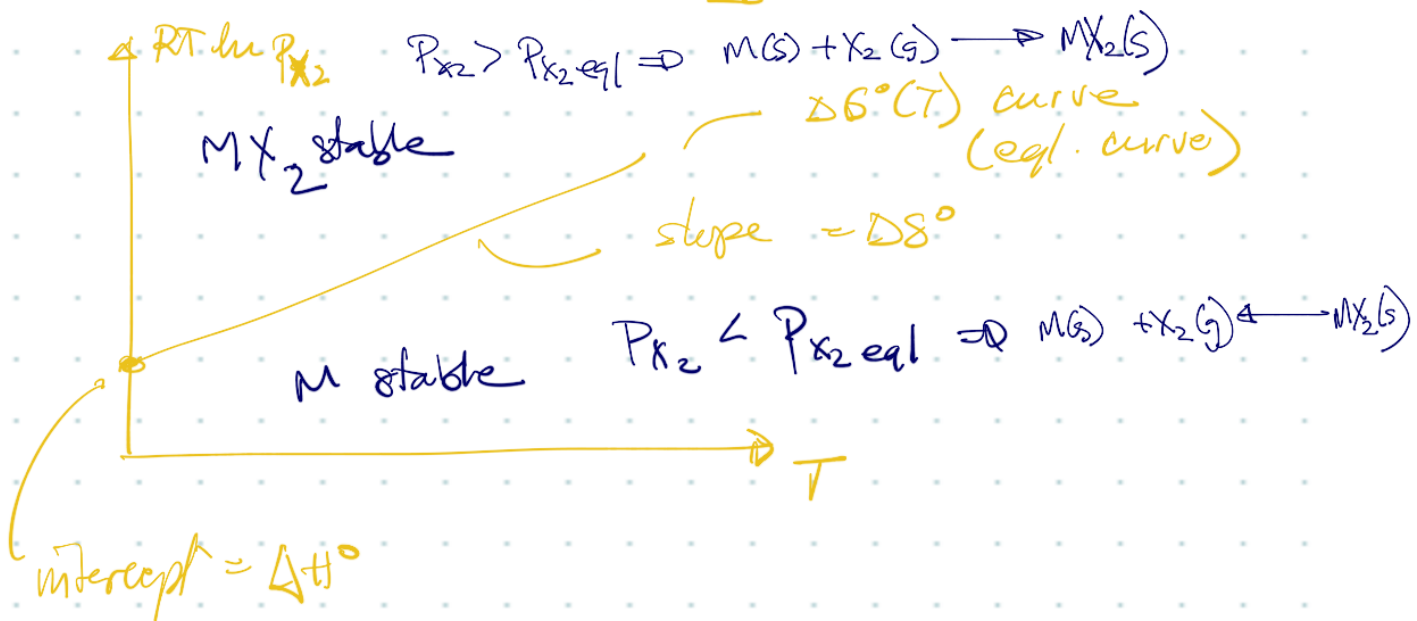 RT ln P_X₂
P_X₂ > P_X₂ eql ⇒ M(s) + X₂(g) → MX₂(s)
ΔG°(T) curve
(eql. curve)
MX₂ stable
slope = ΔS°
P_X₂ < P_X₂ eql ⇒ M(s) + X₂(g) ← MX₂(s)
M stable
T
intercept = ΔH°